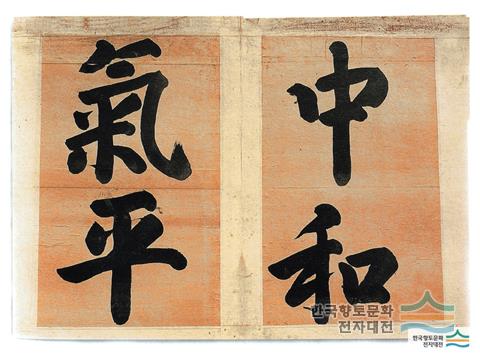 中和
氣平
한국향토문화
전자대전
한국향토문화
전자대전